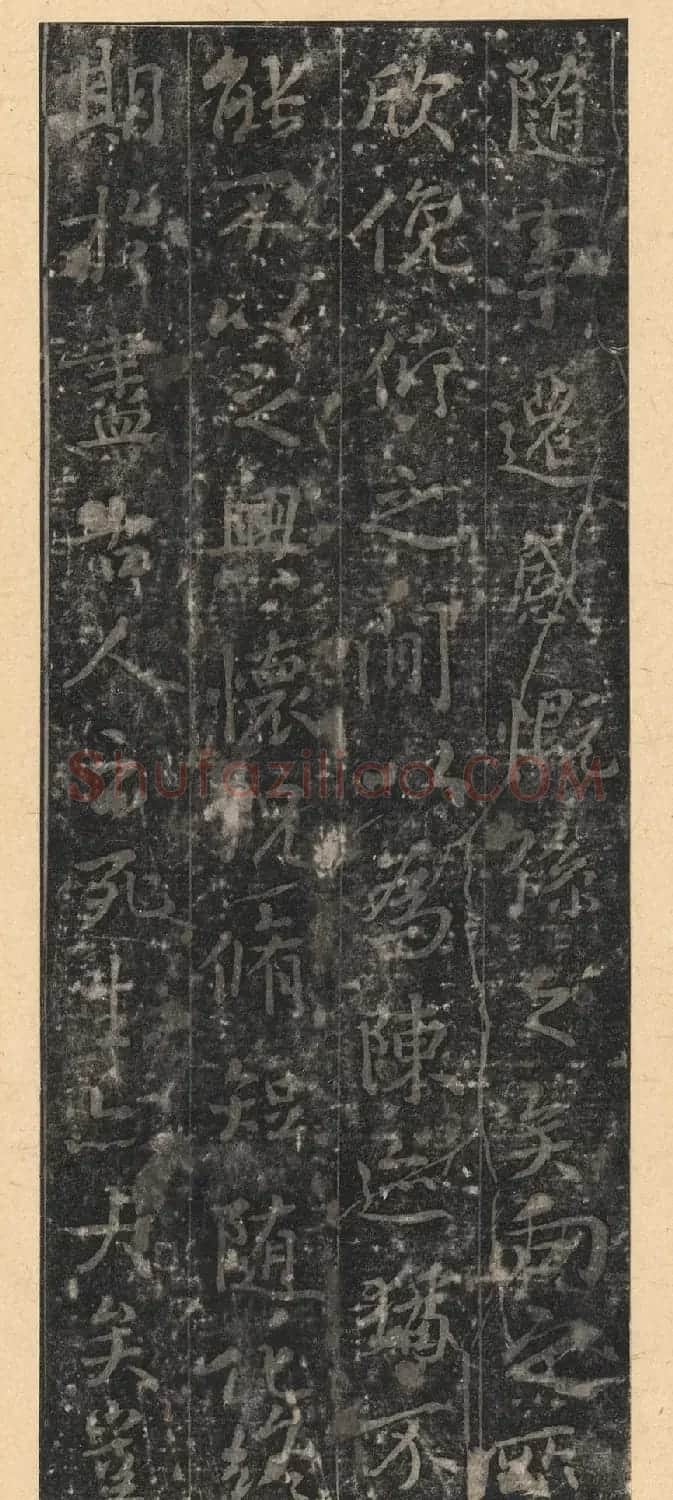 随事遷感慨係之矣向之所
欣俛仰之間以為陳迹猶不
能不以之興懷況脩短随化終
期於盡古人云死生亦大矣豈
Shufaziliao.COM